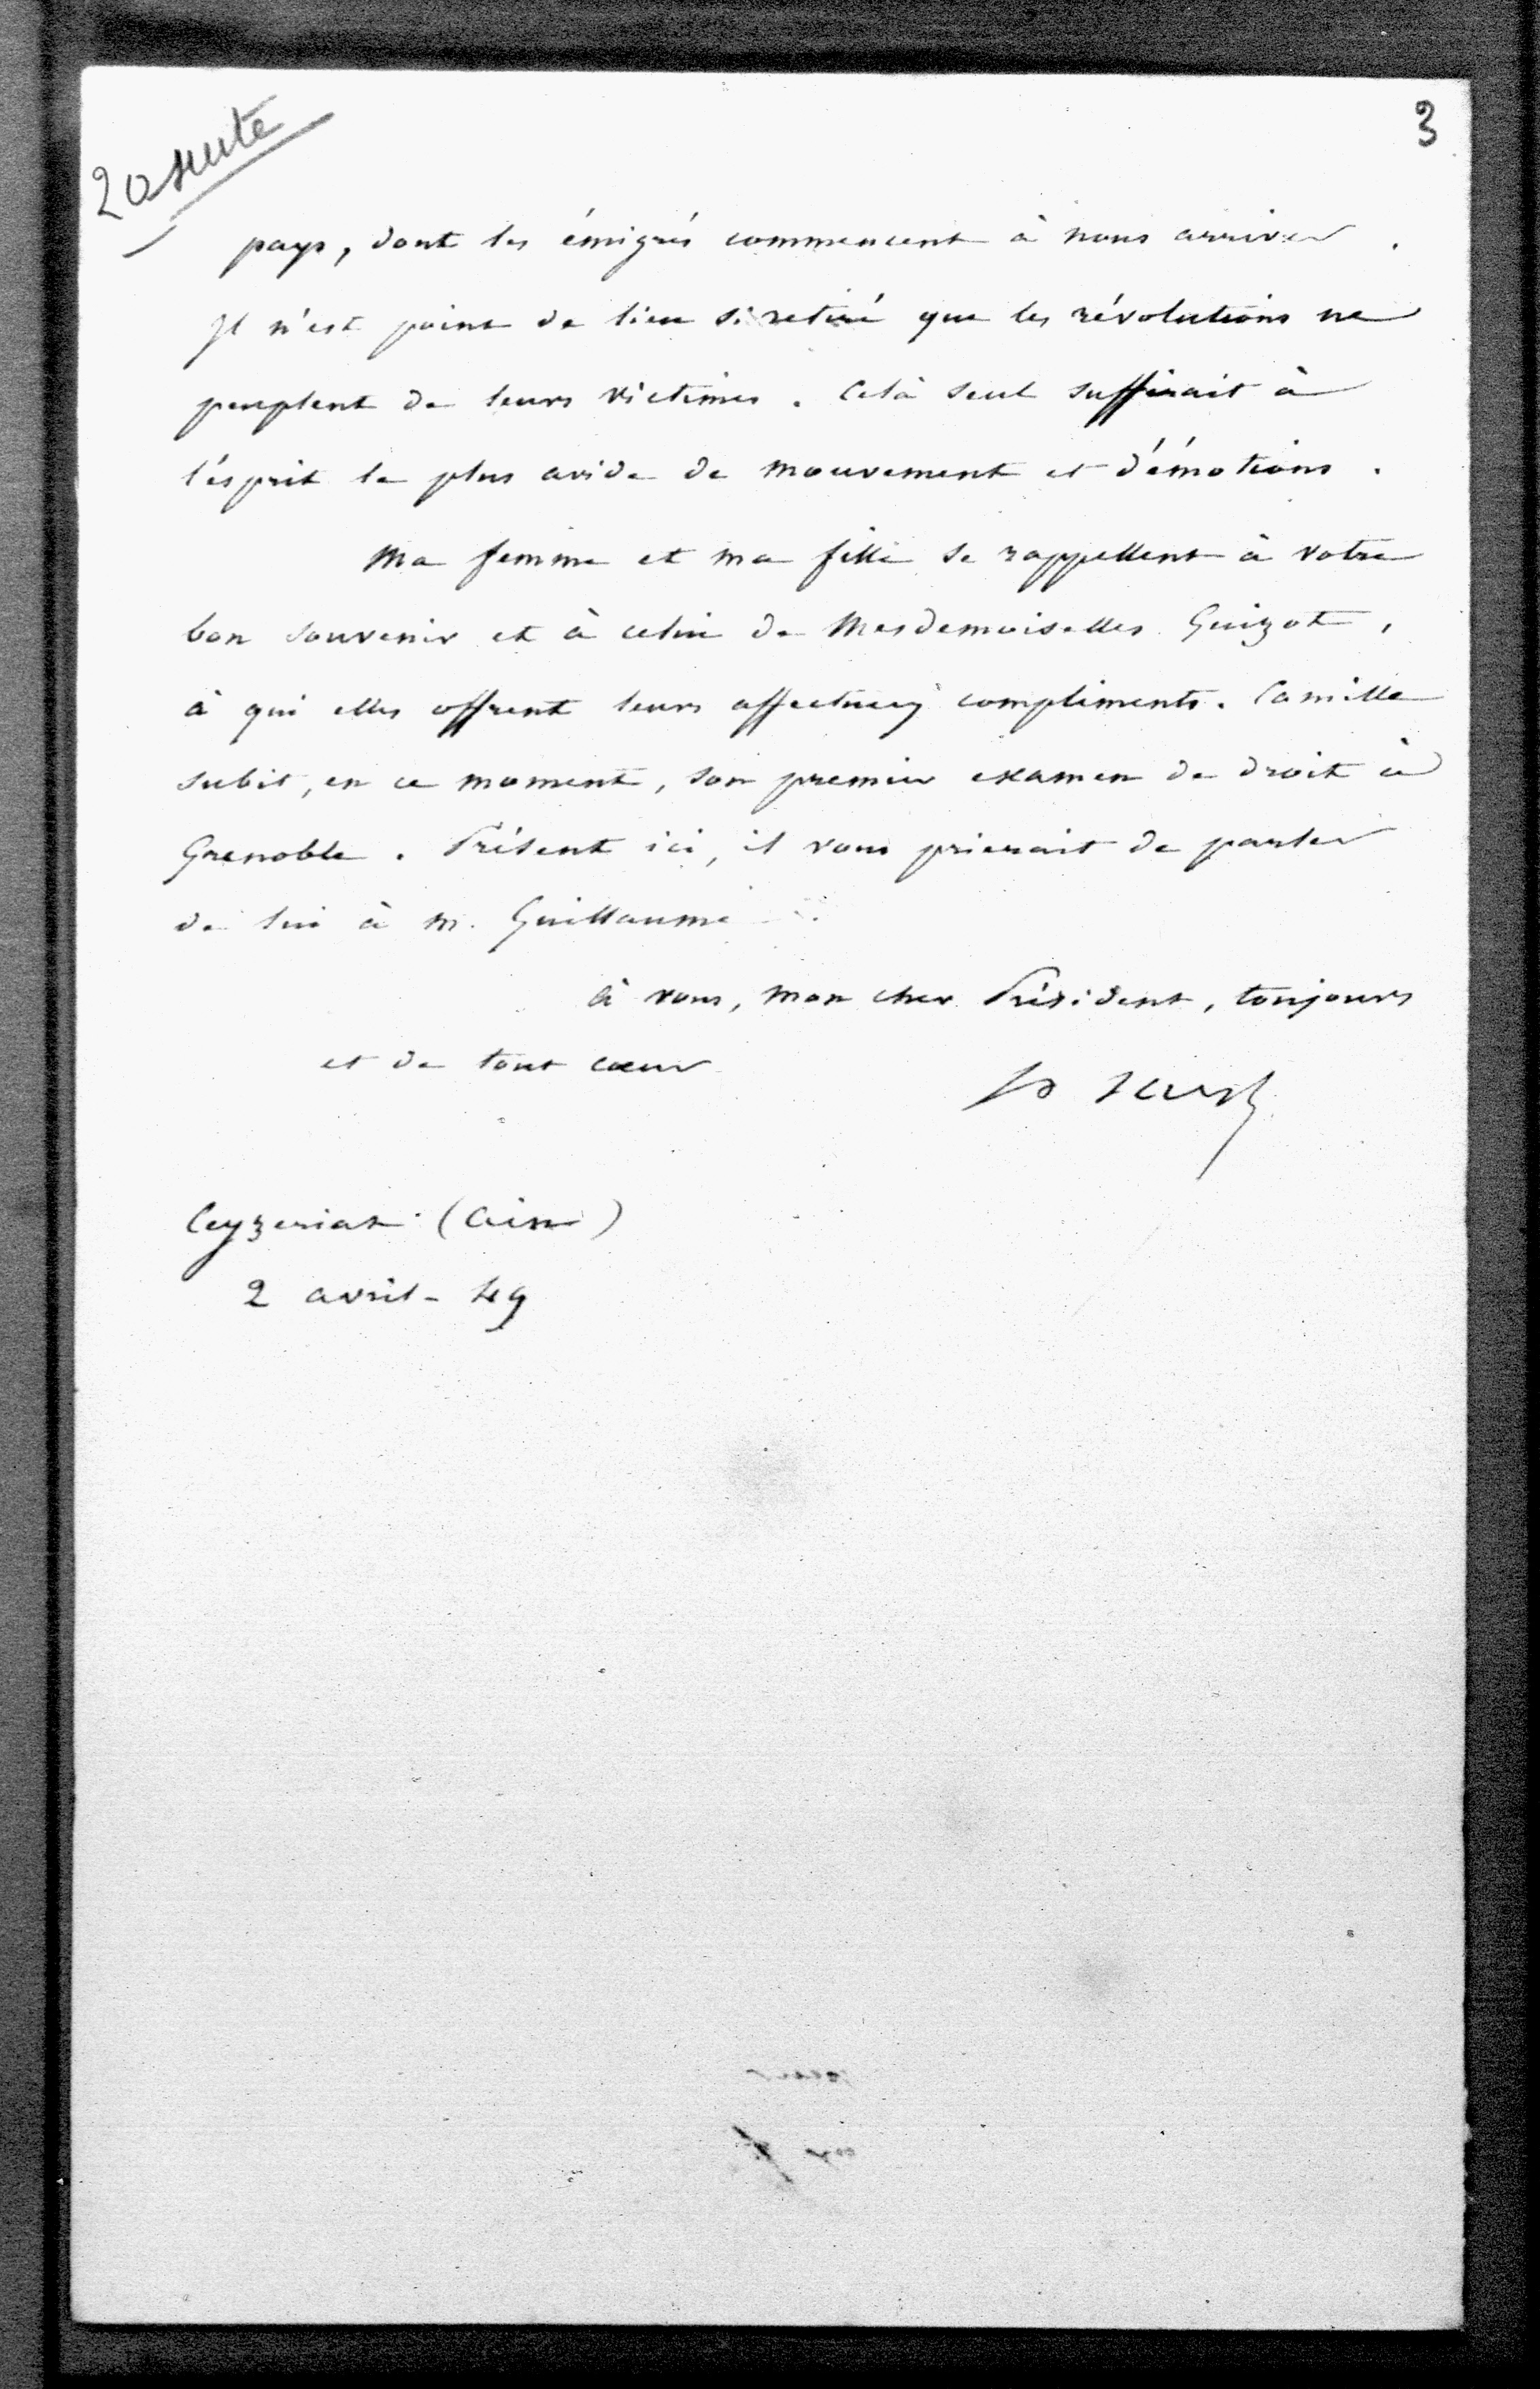 20 suite
3
pays, dont les émigrés commencent à nous arriver.
Il n'est point de lieu si retiré que les révolutions ne
peuplent de leurs victimes. Celà seul suffirait à
l'ésprit le plus avide de mouvement et d'émotions.
Ma femme et ma fille se rappellent à votre
bon souvenir et à celui de Mesdemoiselles Guizot,
à qui elles offrent leurs affectueux compliments. Camille
subit, en ce moment, son premier examen de droit à
Grenoble. Présent ici, il vous prierait de parler
de lui à M. Guillaume.
à vous, mon cher Président, toujours
et de tout cœur
Ceyzeriat (Ain)
2 avril - 49